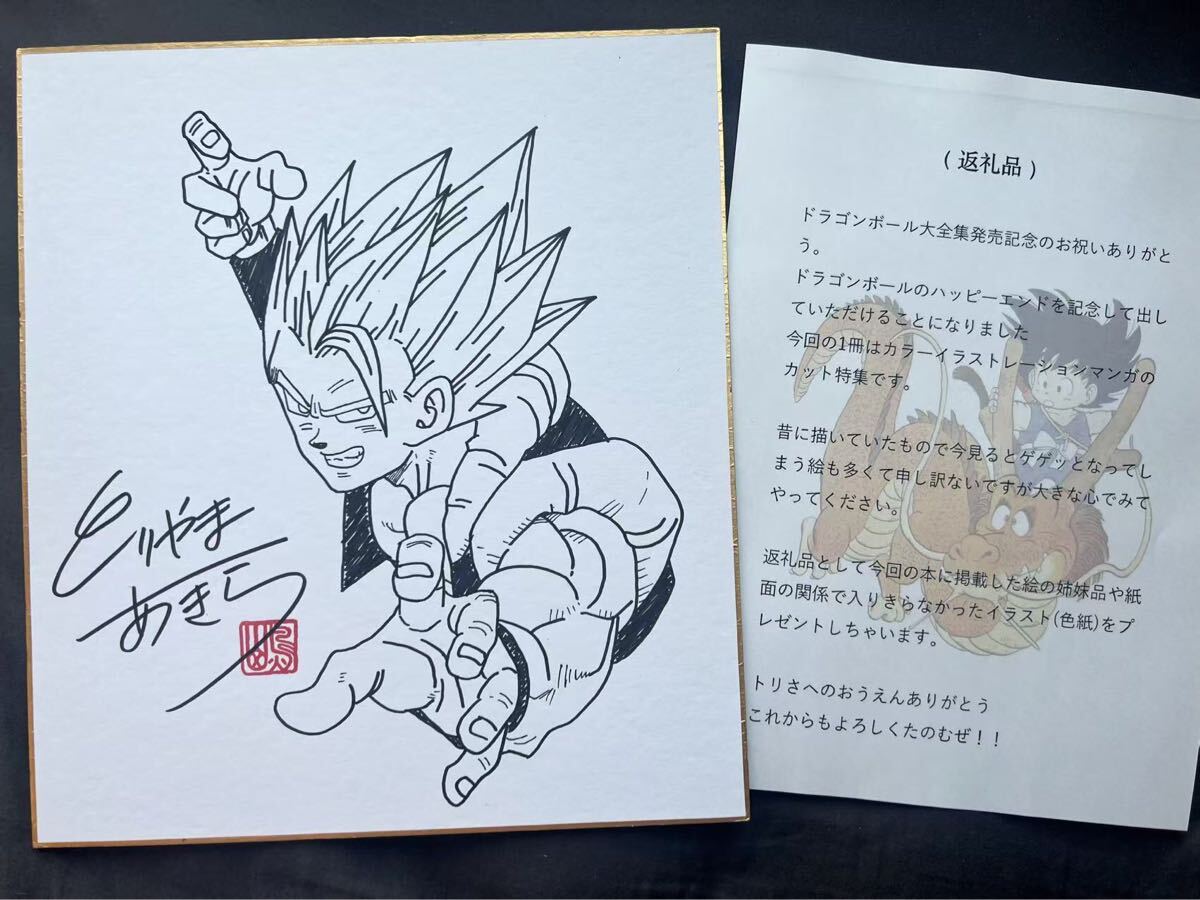 とりやま
あきら
(返礼品)
ドラゴンボール大全集発売記念のお祝いありがと
う。
ドラゴンボールのハッピーエンドを記念して出し
ていただけることになりました
今回の1冊はカラーイラストレーションマンガの
カット特集です。
昔に描いていたもので今見るとゲゲッとなってし
まう絵も多くて申し訳ないですが大きな心でみて
やってください。
返礼品として今回の本に掲載した絵の姉妹品や紙
面の関係で入りきらなかったイラスト(色紙)をプ
レゼントしちゃいます。
トリさへのおうえんありがとう
これからもよろしくたのむぜ！！